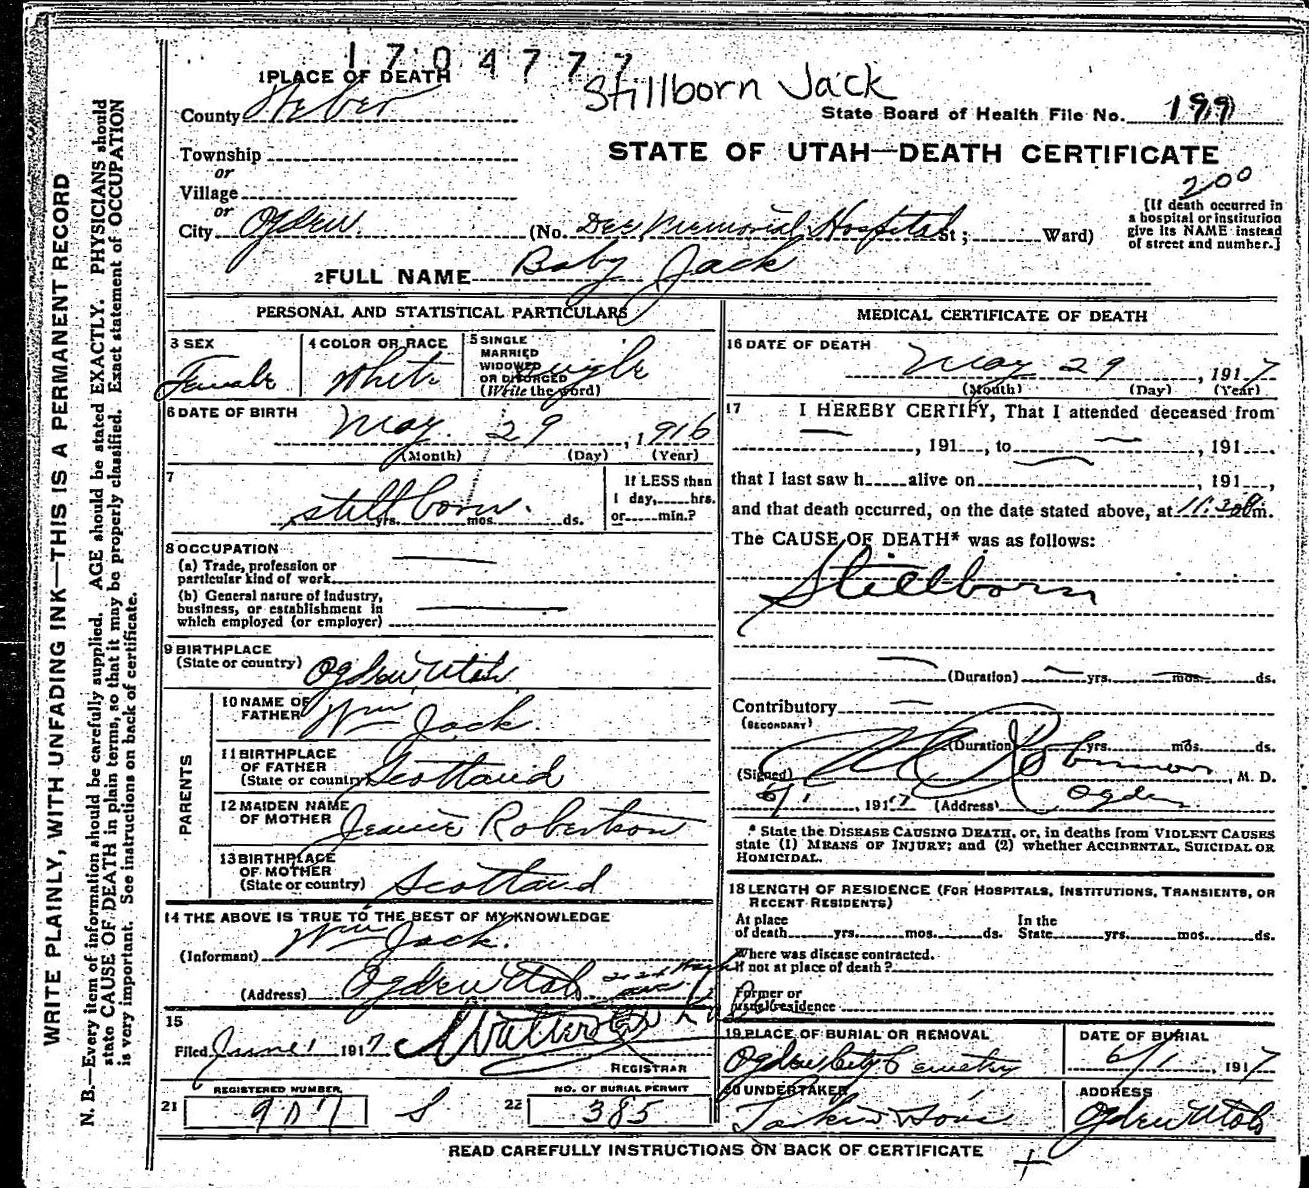 1704777
Stillborn Jack
1 PLACE OF DEATH
County Weber
State Board of Health File No. 199
Township
or
STATE OF UTAH—DEATH CERTIFICATE
200
Village
or
City Ogden. (No. Dee Memorial Hospital St; Ward)
[If death occurred in
a hospital or institution
give its NAME instead
of street and number.]
2 FULL NAME Baby Jack
PERSONAL AND STATISTICAL PARTICULARS
3 SEX
Female
4 COLOR OR RACE
White
5 SINGLE
MARRIED
WIDOWED
OR DIVORCED
(Write the word)
single
6 DATE OF BIRTH
May 29, 1916
(Month) (Day) (Year)
7
stillborn.
yrs. mos. ds.
If LESS than
1 day, hrs.
or min.?
8 OCCUPATION
(a) Trade, profession or
particular kind of work
(b) General nature of industry,
business, or establishment in
which employed (or employer)
9 BIRTHPLACE
(State or country) Ogden Utah
PARENTS
10 NAME OF
FATHER Wm Jack.
11 BIRTHPLACE
OF FATHER
(State or country) Scotland
12 MAIDEN NAME
OF MOTHER Jeanie Robertson
13 BIRTHPLACE
OF MOTHER
(State or country) Scotland
14 THE ABOVE IS TRUE TO THE BEST OF MY KNOWLEDGE
(Informant) Wm Jack.
(Address) Ogden Utah
15
Filed June 1 1917 Walter
REGISTRAR
REGISTERED NUMBER
21 907 S
NO. OF BURIAL PERMIT
22 385
MEDICAL CERTIFICATE OF DEATH
16 DATE OF DEATH
May 29, 1917
(Month) (Day) (Year)
17 I HEREBY CERTIFY, That I attended deceased from
, 191 , to , 191 .
that I last saw h alive on , 191 ,
and that death occurred, on the date stated above, at 11:30 m.
The CAUSE OF DEATH* was as follows:
Stillborn
(Duration) yrs. mos. ds.
Contributory
(SECONDARY)
(Duration) yrs. mos. ds.
(Signed) Robinson, M. D.
6/1, 1917 (Address) Ogden
* State the DISEASE CAUSING DEATH, or, in deaths from VIOLENT CAUSES
state (1) MEANS OF INJURY; and (2) whether ACCIDENTAL, SUICIDAL OR
HOMICIDAL.
18 LENGTH OF RESIDENCE (FOR HOSPITALS, INSTITUTIONS, TRANSIENTS, OR
RECENT RESIDENTS)
At place
of death yrs. mos. ds.
In the
State yrs. mos. ds.
Where was disease contracted.
If not at place of death?
Former or
usual residence
19 PLACE OF BURIAL OR REMOVAL
Ogden City Cemetry
DATE OF BURIAL
6/1, 1917
20 UNDERTAKER
Larkin & Sons
ADDRESS
Ogden Utah
READ CAREFULLY INSTRUCTIONS ON BACK OF CERTIFICATE
WRITE PLAINLY, WITH UNFADING INK—THIS IS A PERMANENT RECORD
N. B.—Every item of information should be carefully supplied. AGE should be stated EXACTLY. PHYSICIANS should
state CAUSE OF DEATH in plain terms, so that it may be properly classified. Exact statement of OCCUPATION
is very important. See instructions on back of certificate.